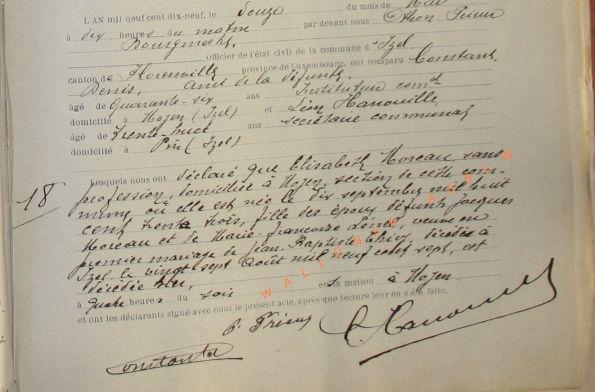 L'AN mil neuf cent dix-neuf, le Douze du mois de Mai
à dix heures du matin par devant nous Prieur
Bourgmestre,
Officier de l'état civil de la commune d'Izel
canton de Florenville province de Luxembourg, ont comparu Constant
Denis, Ami de la défunte.
âgé de Quarante-six ans Instituteur com
domicilié à Moyen (Izel) et Léon Hanouille
âgé de Trente-huit ans secrétaire communal
domicilié à Pin (Izel)
18
Lesquels nous ont déclaré que Elisabeth Moreau sans
profession, domiciliée à Moyen, section de cette com-
mune, où elle est née le dix septembre mil huit
cent trente trois, fille des époux défunts Jacques
Moreau et de Marie-Françoise veuve en
premier mariage de Jean-Baptiste Thiry décédé à
Izel le vingt-sept Août mil neuf cent sept, est
décédée hier,
à quatre heures du soir en sa maison à Moyen
et ont les déclarants signé avec nous le présent acte, après que lecture leur en a été faite.
Prieur
Hanouille